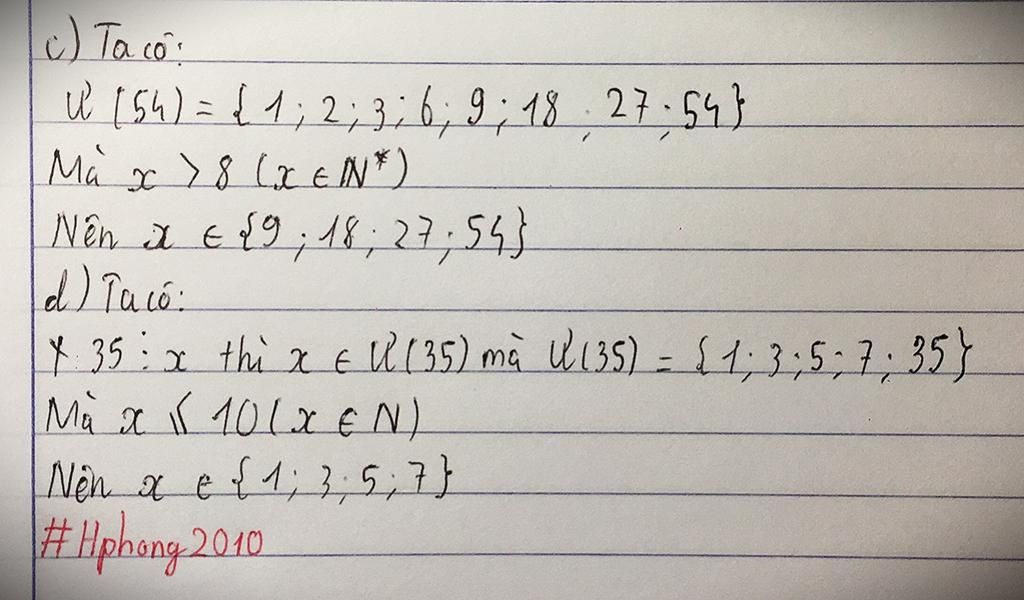 c) Ta có:
Ư (54) = { 1 ; 2 ; 3 ; 6 ; 9 ; 18 ; 27 ; 54 }
Mà x > 8 ( x ∈ N* )
Nên x ∈ { 9 ; 18 ; 27 ; 54 }
d) Ta có:
* 35 ⋮ x thì x ∈ Ư(35) mà Ư(35) = { 1 ; 3 ; 5 ; 7 ; 35 }
Mà x ⩽ 10 ( x ∈ N )
Nên x ∈ { 1 ; 3 ; 5 ; 7 }
#Hphong2010